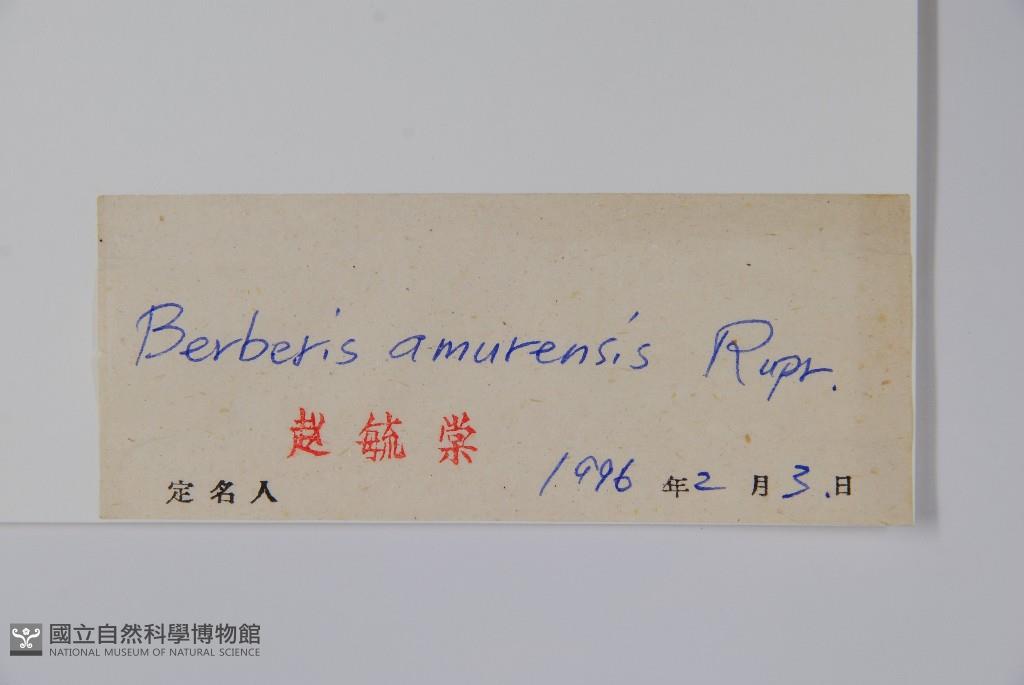 Berberis amurensis Rupr.
赵毓棠
定名人 1996年2月3.日
國立自然科學博物館
NATIONAL MUSEUM OF NATURAL SCIENCE